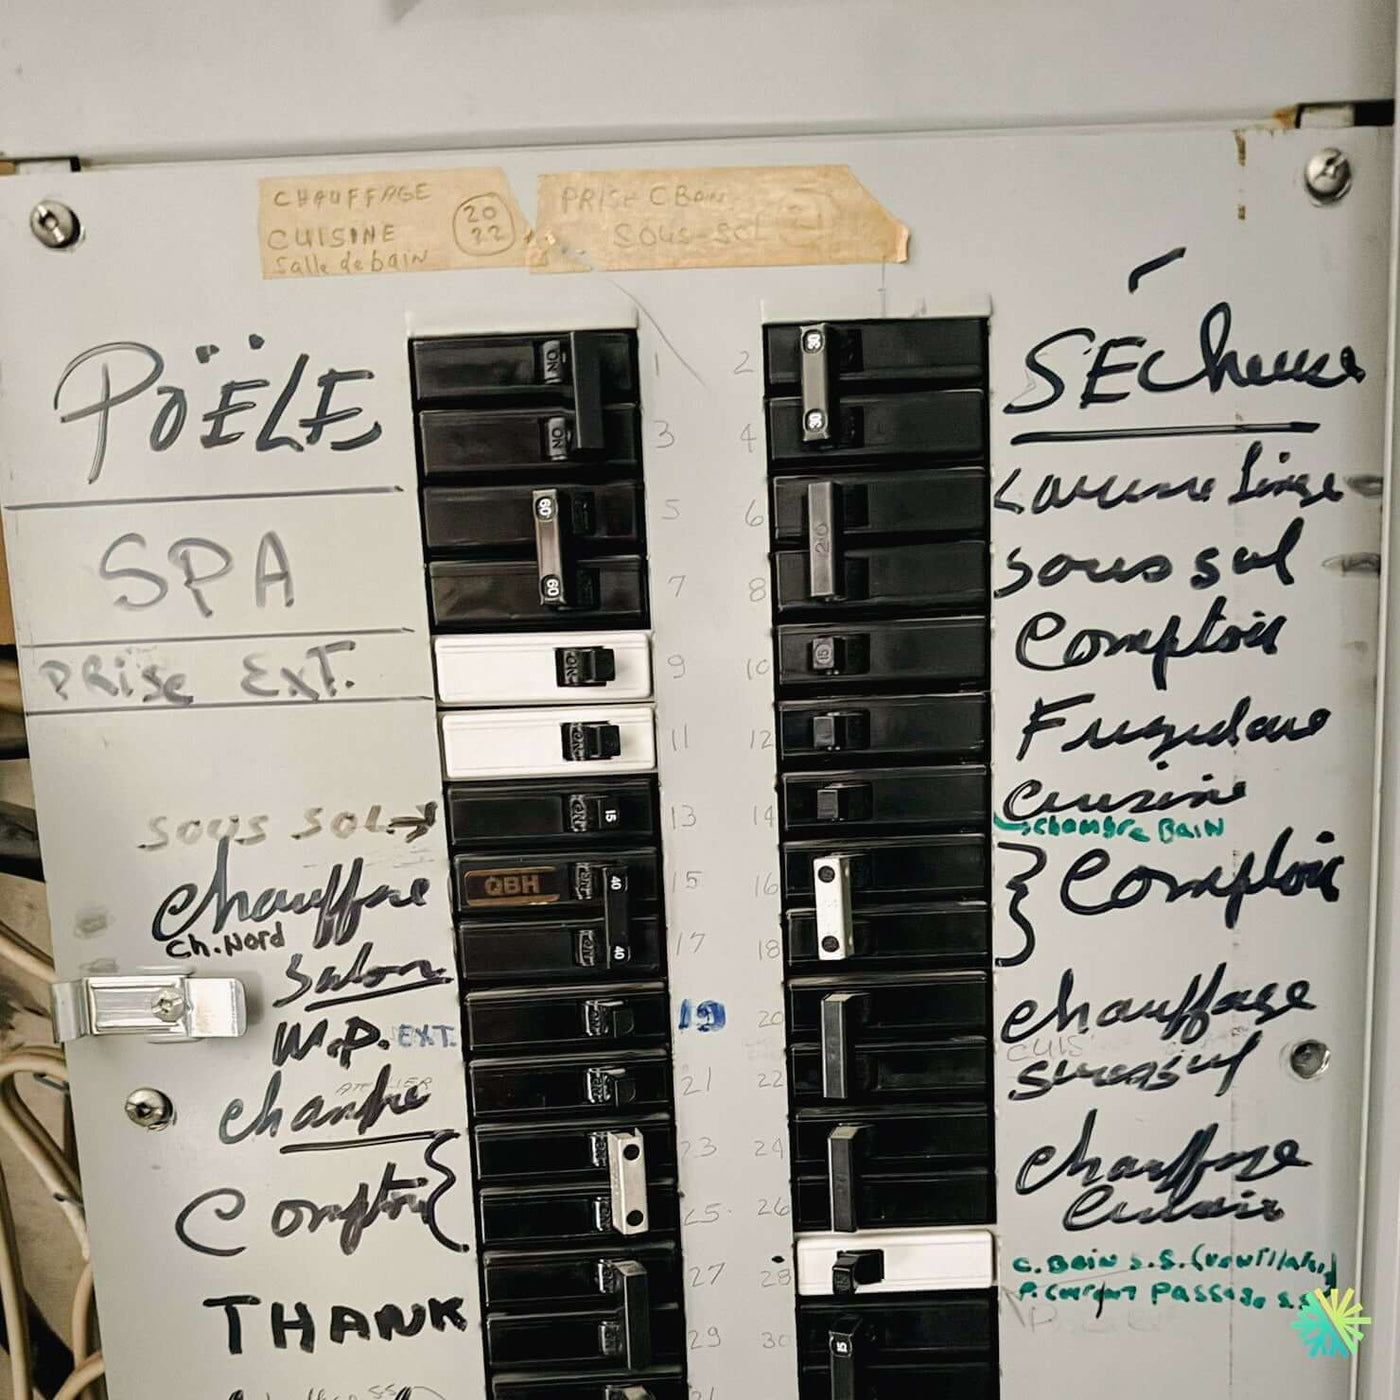 CHAUFFAGE
CUISINE
Salle de bain
20
22
PRISE C BAIN
SOUS-SOL
PÖËLE
SPA
PRISE EXT.
SOUS SOL→
Chauffage
Ch. Nord
Salon
W.P. EXT.
ATELIER
Chambre
Comptoir
THANK
ON
ON
60
60
ON
ON
ON
15
QBH
40
ON
40
1
3
5
7
9
11
13
15
17
19
21
23
25
27
29
2
4
6
8
10
12
14
16
18
20
22
24
26
28
30
30
30
20
15
15
SÉCheuse
Laveuse Linge
sous sol
Comptoir
Frigidaire
Cuisine
chambre BAIN
Comptoir
Chauffage
CUIS
sous sol
Chauffage
C. Bain S.S.
Passage S.S